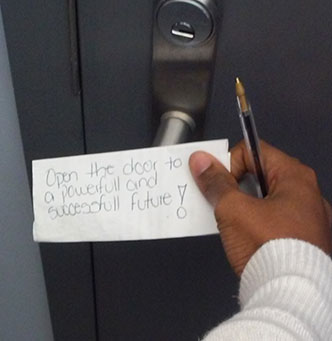 Open the door to
a powerfull and
successfull future!